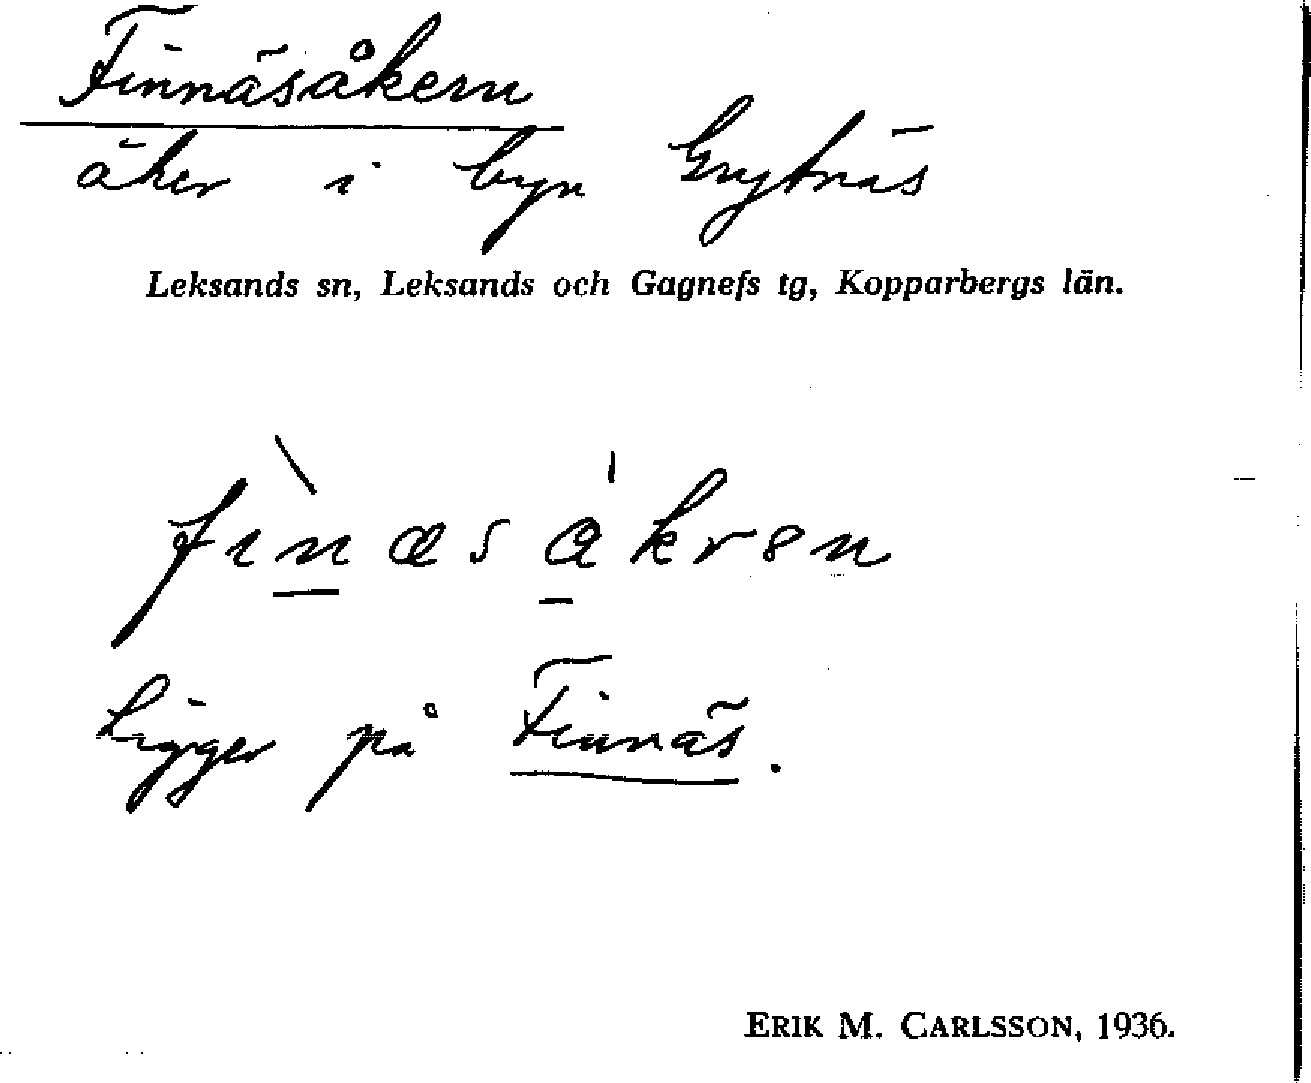 Finnäsåkern
åker i byn Grytnäs
Leksands sn, Leksands och Gagnefs tg, Kopparbergs län.
fìnæsákrən
Ligger på Finnäs.
ERIK M. CARLSSON, 1936.